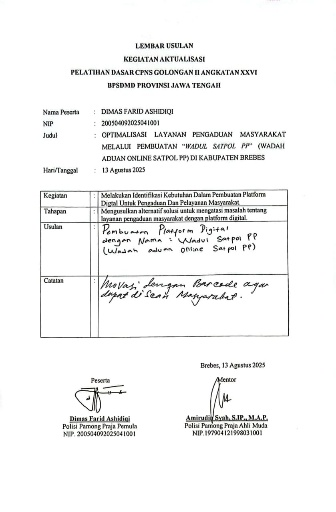 LEMBAR USULAN
KEGIATAN AKTUALISASI
PELATIHAN DASAR CPNS GOLONGAN II ANGKATAN XXVI
BPSDMD PROVINSI JAWA TENGAH
Nama Peserta : DIMAS FARID ASHIDIQI
NIP : 200504092025041001
Judul : OPTIMALISASI LAYANAN PENGADUAN MASYARAKAT
MELALUI PEMBUATAN "WADUL SATPOL PP" (WADAH
ADUAN ONLINE SATPOL PP) DI KABUPATEN BREBES
Hari/Tanggal : 13 Agustus 2025
Kegiatan : Melakukan Identifikasi Kebutuhan Dalam Pembuatan Platform
Digtal Untuk Pengaduan Dan Pelayanan Masyarakat.
Tahapan : Mengusulkan alternatif solusi untuk mengatasi masalah tentang
layanan pengaduan masyarakat dengan platform digital.
Usulan : Pembuatan Platform Digital
dengan Nama : Wadul Satpol PP
(Wadah aduan online Satpol PP)
Catatan : Inovasi dengan Barcode agar
dapat di Scan Masyarakat.
Brebes, 13 Agustus 2025
Peserta
Mentor
Dimas Farid Ashidiqi
Polisi Pamong Praja Pemula
NIP. 200504092025041001
Amirudin Syah, S.IP., M.A.P.
Polisi Pamong Praja Ahli Muda
NIP.197904121998031001